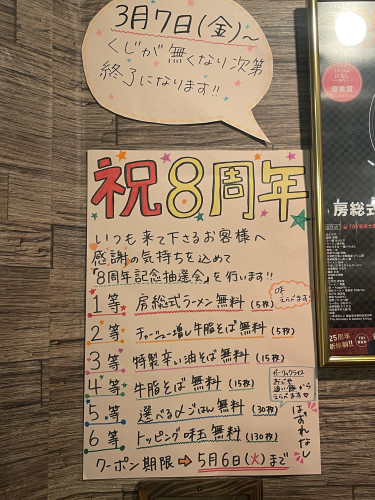 3月7日(金)～
くじが無くなり次第
終了になります!!
祝8周年
いつも来て下さるお客様へ
感謝の気持ちを込めて
「8周年記念抽選会」を行います!!
1等 房総式ラーメン無料(5枚) 味えらべます!
2等 チャーシュー増し牛脂そば無料(5枚)
3等 特製辛い油そば無料(15枚)
4等 牛脂そば無料(15枚)
ガーリックライス
おじや
追い飯から
えらべます♡
5等 選べる〆ごはん無料(30枚)
6等 トッピング味玉無料(130枚)
はずれなし
クーポン期限➡5月6日(火)まで
房総式
25周年